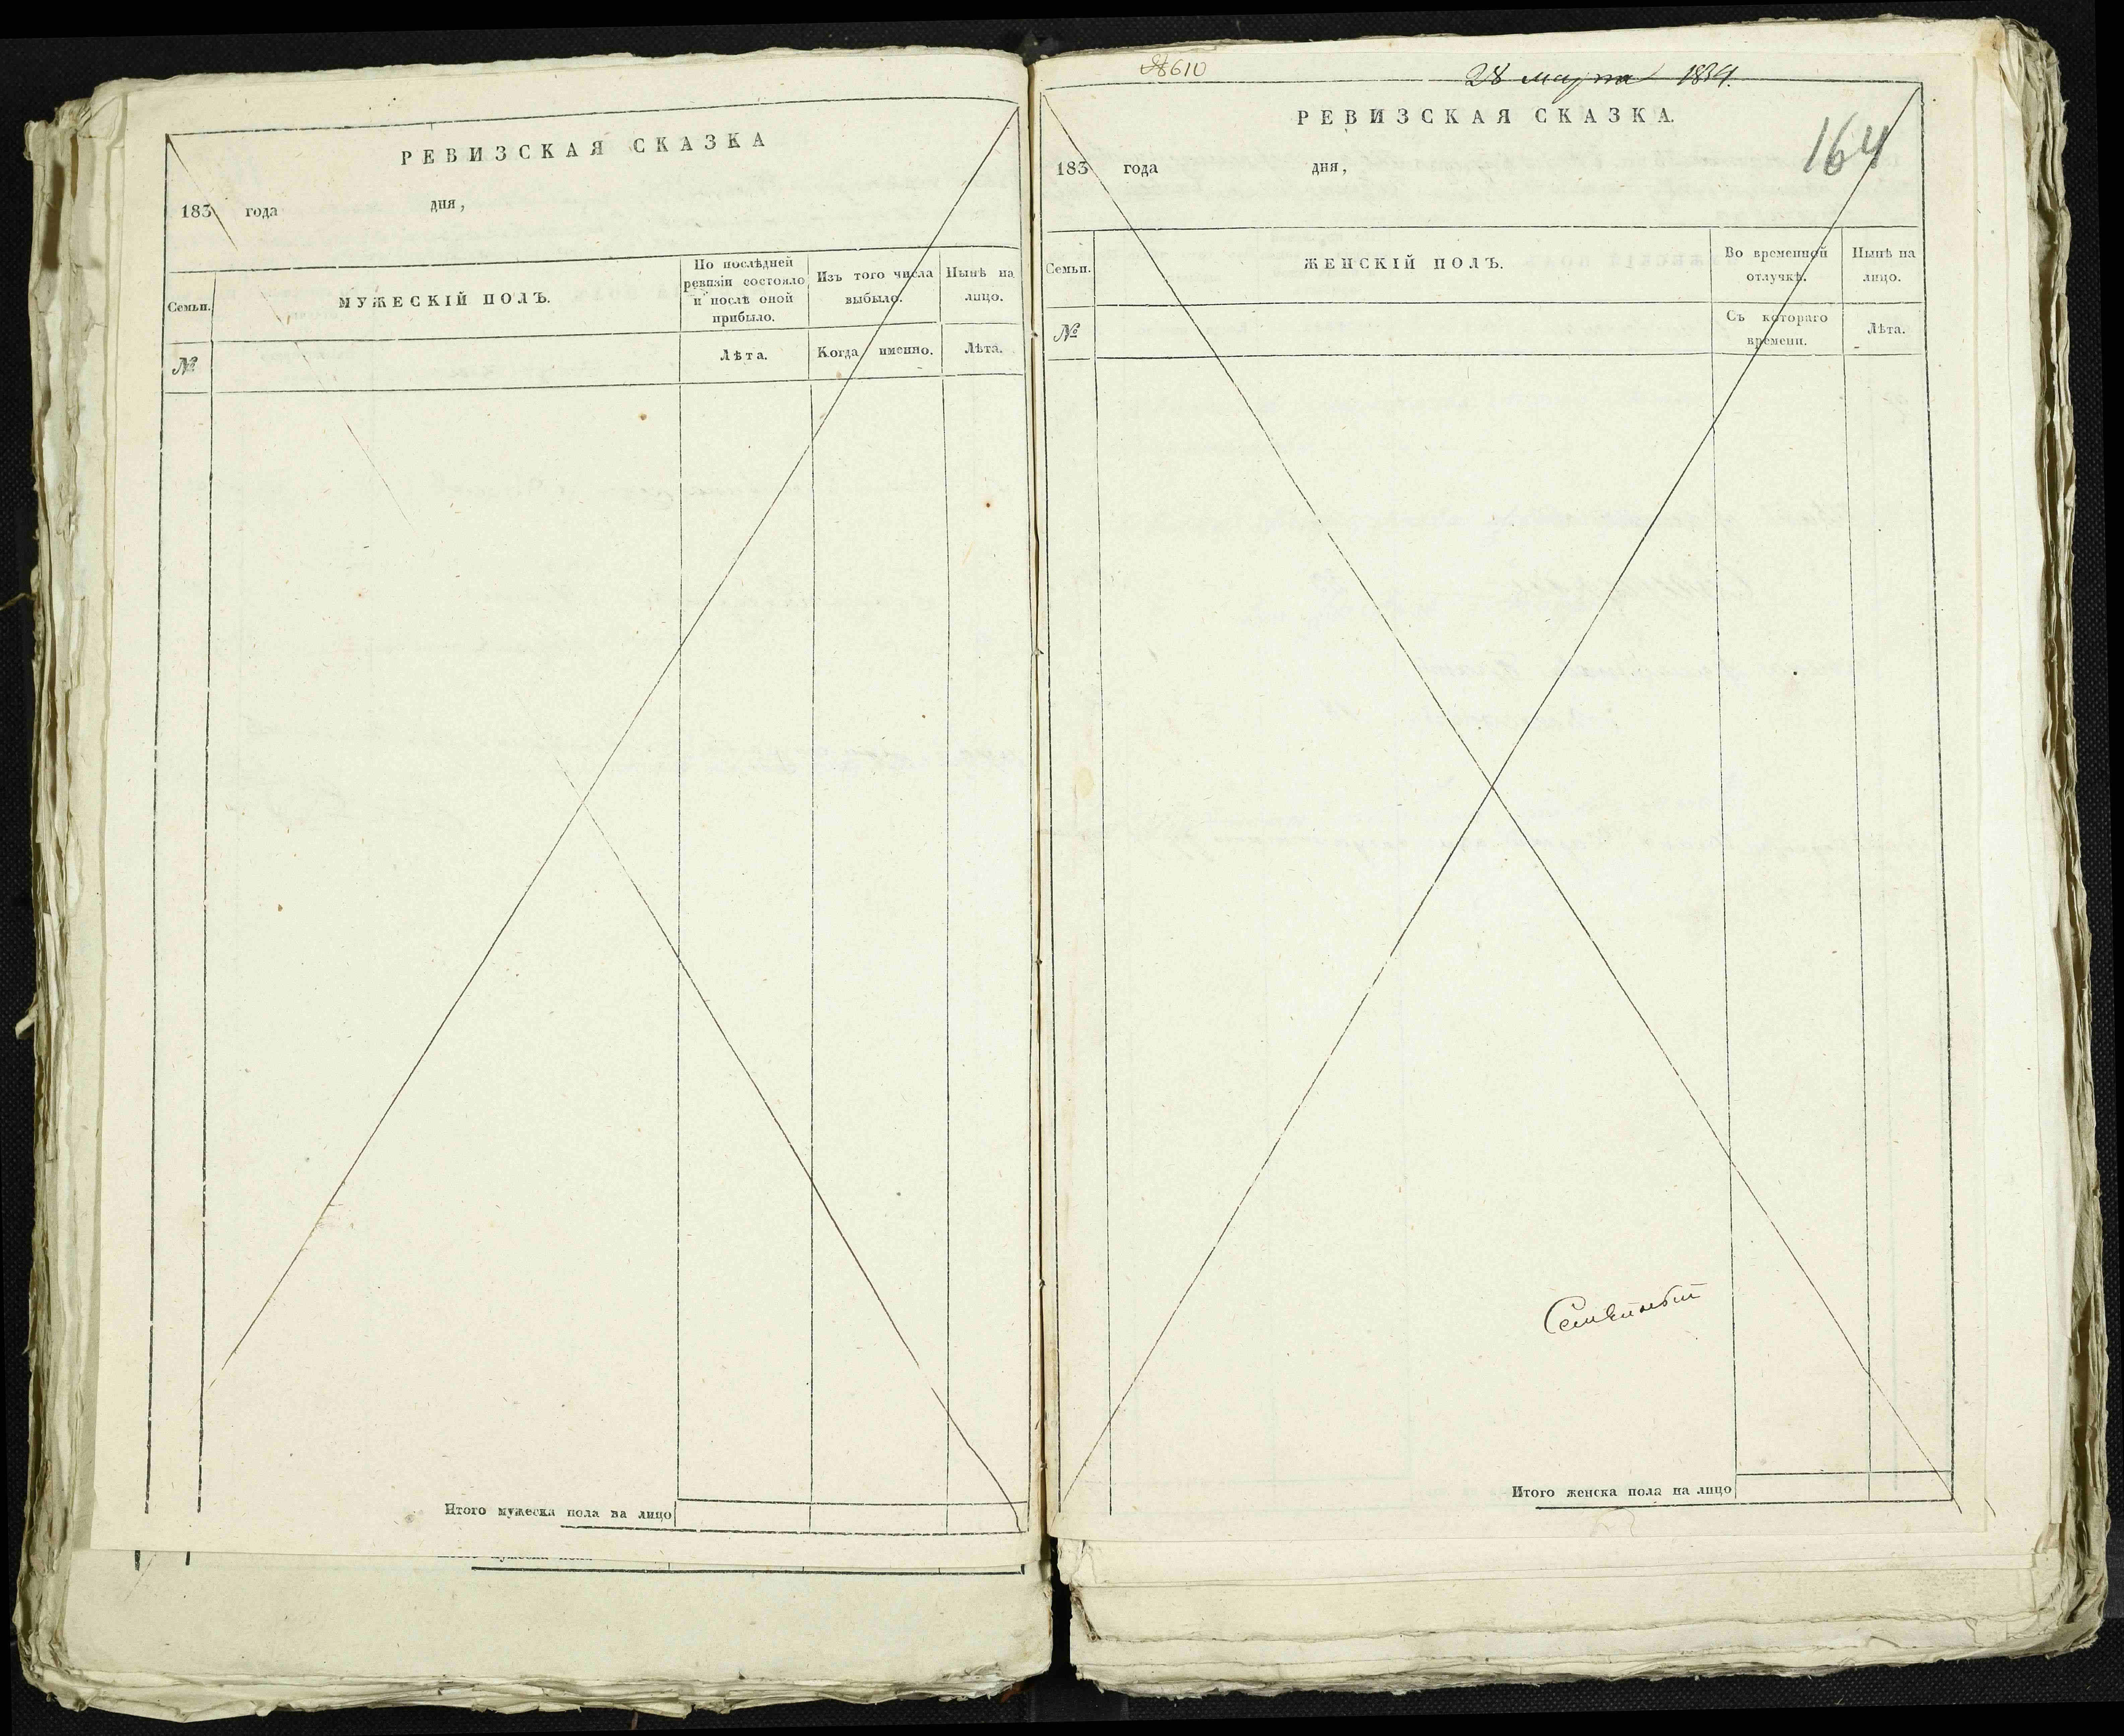 РЕВИЗСКАЯ СКАЗКА
183 года дня,
Семьи.
МУЖЕСКІЙ ПОЛЪ.
По послѣдней ревизіи состояло и послѣ оной прибыло.
Изъ того числа выбыло.
Нынѣ на лицо.
№
Лѣта.
Когда именно.
Лѣта.
Итого мужеска пола на лицо
8610
28 марта 1834.
РЕВИЗСКАЯ СКАЗКА.
164
183 года дня,
Семьи.
ЖЕНСКІЙ ПОЛЪ.
Во временной отлучкѣ.
Нынѣ на лицо.
№
Съ котораго времени.
Лѣта.
Итого женска пола на лицо